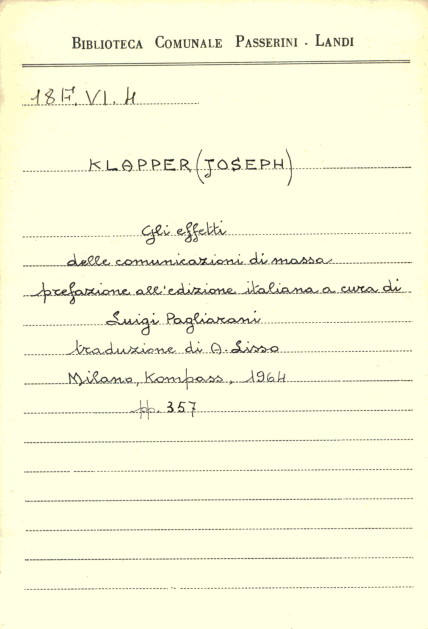 BIBLIOTECA COMUNALE PASSERINI - LANDI
18F. VI. 4
KLAPPER (JOSEPH)
Gli effetti
delle comunicazioni di massa
prefazione all'edizione italiana a cura di
Luigi Pagliarani
traduzione di A. Lisso
Milano, Kompass, 1964
pp. 357